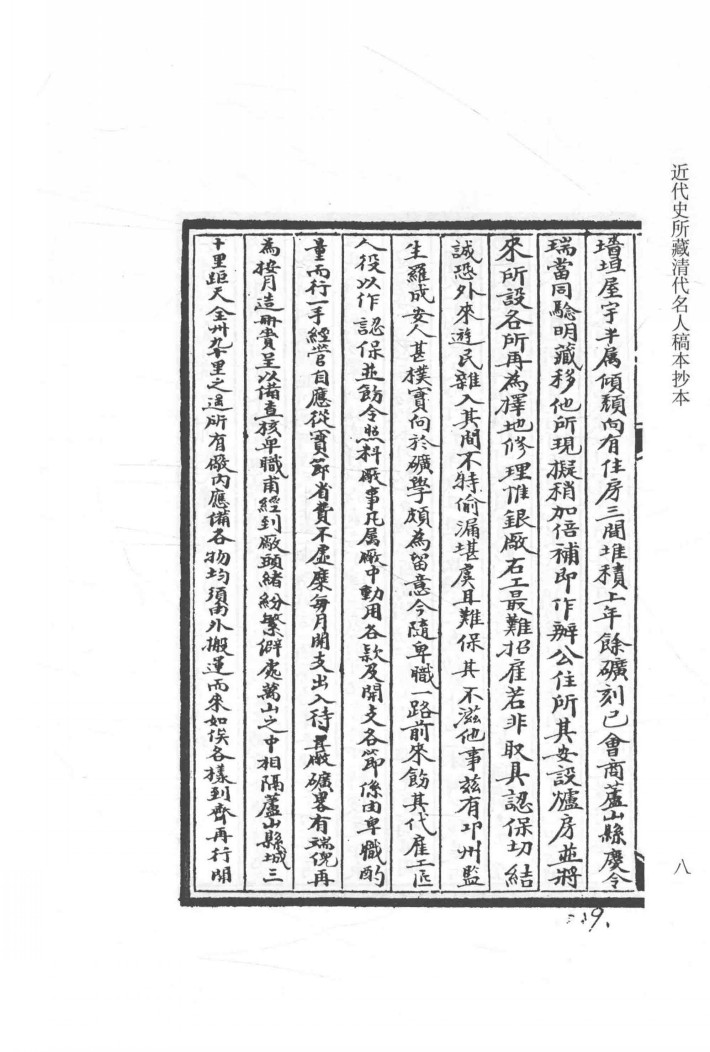 近代史所藏清代名人稿本抄本
墻垣屋宇半属傾頽向有住房三間堆積上年餘礦刻已會商蘆山縣慶令
瑞當同驗明藏移他所現擬稍加倍補即作辦公住所其安設爐房並將
來所設各所再為擇地修理惟銀廠石工最難招雇若非取具認保切結
誠恐外來遊民雜入其間不特偷漏堪虞且難保其不滋他事兹有邛州監
生羅成安人甚樸實向於礦學頗為留意今隨卑職一路前來飭其代雇工匠
人役以作認保並飭令照料廠事凡属廠中動用各款及開支各節係由卑職酌
量而行一手經管自應從實節省費不虛糜每月開支出入待廠礦畧有端倪再
為按月造冊賫呈以備查核卑職甫經到廠頭緒紛繁僻處萬山之中相隔蘆山縣城三
十里距天全州九十里之遥所有廠内應備各物均須由外搬運而來如俟各樣到齊再行開
八
9.